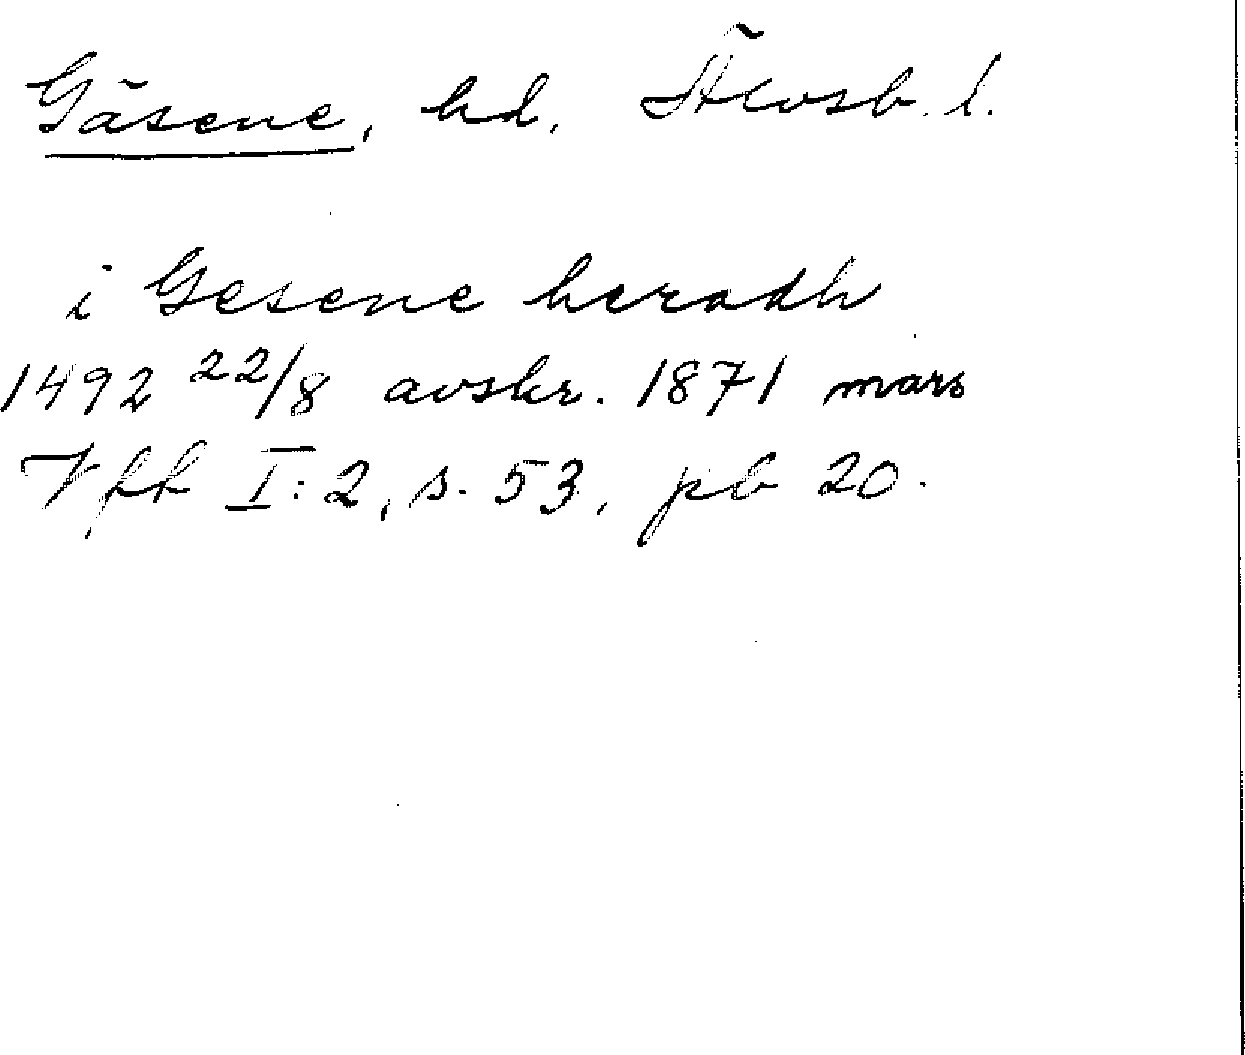 Gäsene, hd, Älvsb. l.
i Gesene heradh
1492 22/8 avskr. 1871 mars
Vfh I:2, s. 53, pb 20.